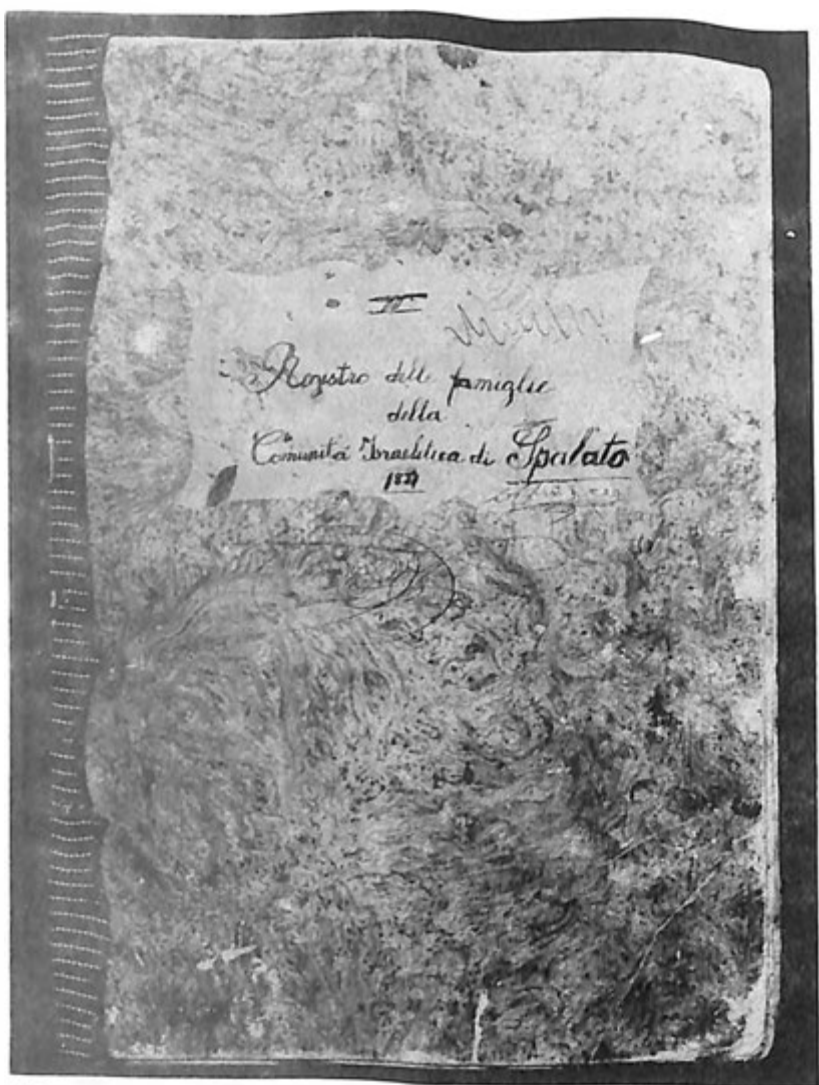 Registro delle famiglie
della
Comunità Israelitica di Spalato